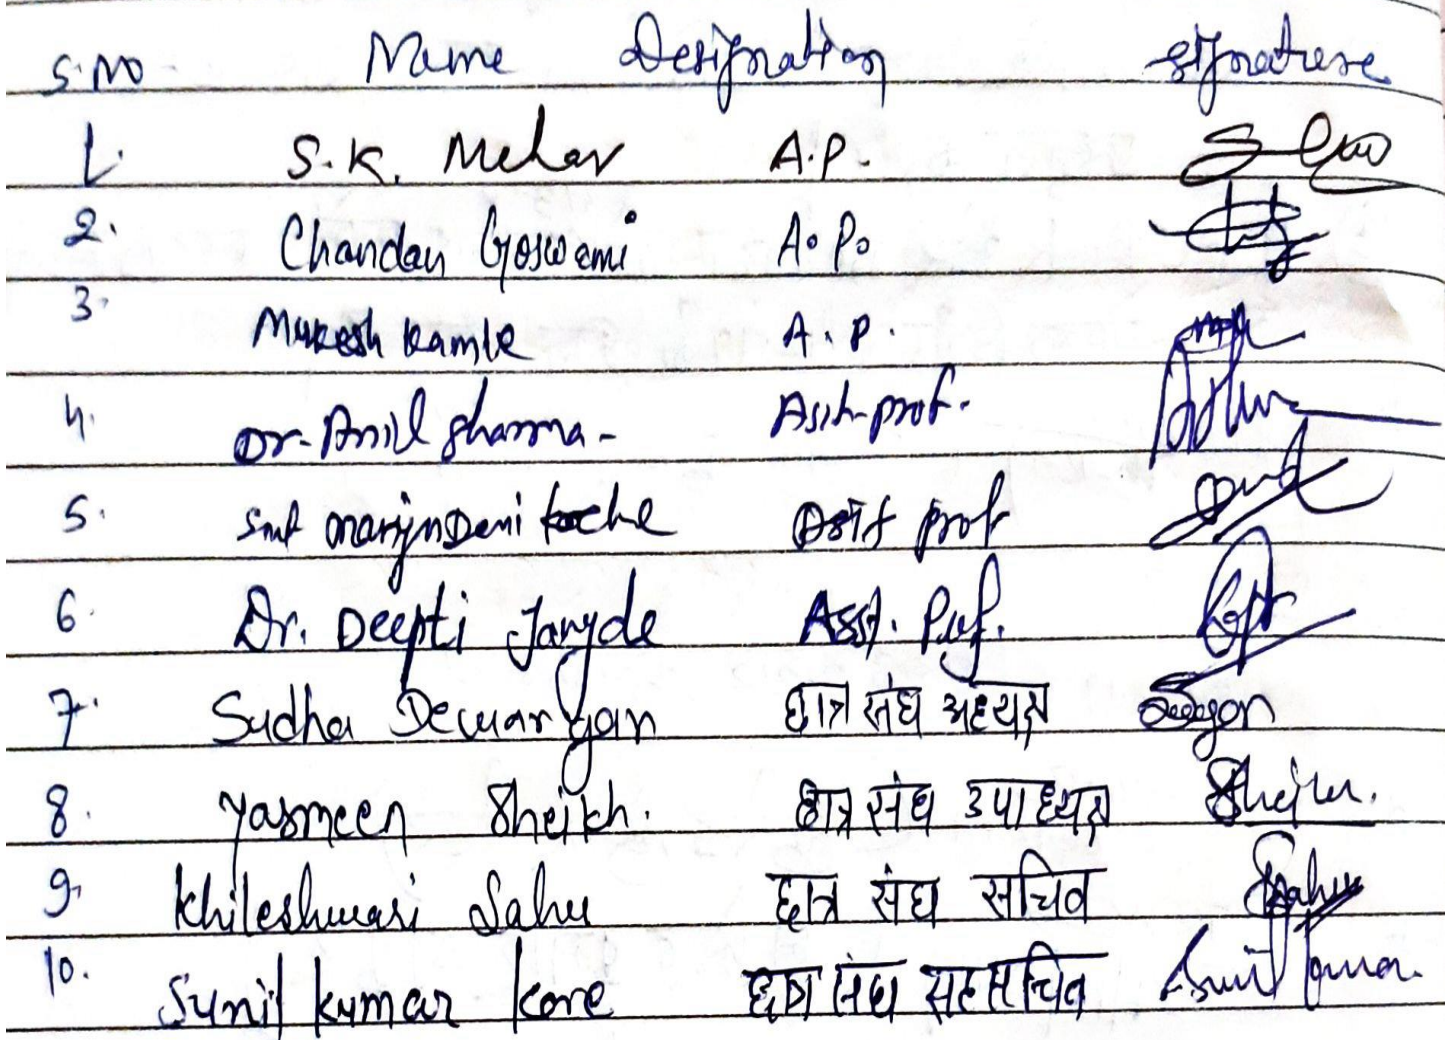 S.NO Name Designation signature
1. S.K. Mehar A.P.
2. Chandan Goswami A.P.
3. Mukesh Kamle A.P.
4. Dr. Anil Sharma - Asst. prof.
5. Smt Devi Asst prof
6. Dr. Deepti Jangde Asst. Prof.
7. Sudha Dewangan छात्र संघ अध्यक्ष
8. Yasmeen Sheikh. छात्र संघ उपाध्यक्ष Sheikh.
9. Khileshwari Sahu छात्र संघ सचिव Sahu
10. Sunil Kumar Kore छात्र संघ सहसचिव Sunil Kumar